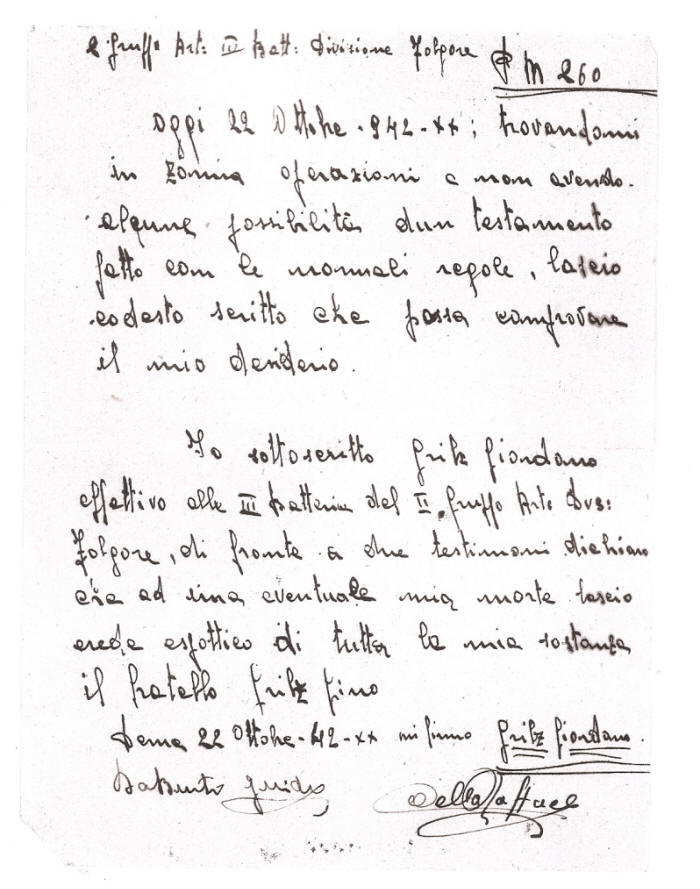 2 Gruppo Art: III Batt: Divisione Folgore P M 260
Oggi 22 Ottobre - 942 - XX ; trovandomi
in zonna operazioni e non avendo
alqune possibilità d'un testamento
fatto com le normali regole, lascio
codesto scritto che possa comprovare
il mio desiderio.
Io sottoscritto Grilz Giordano
effettivo alla III Batteria del II Gruppo Art: Dvs:
Folgore, di fronte a due testimoni dichiaro
che ad una eventuale mia morte lascio
erede di tutta la mia sostanza
il fratello Grilz Gino
22 Ottobre - 42 - XX mi firmo Grilz Giordano.
Guido